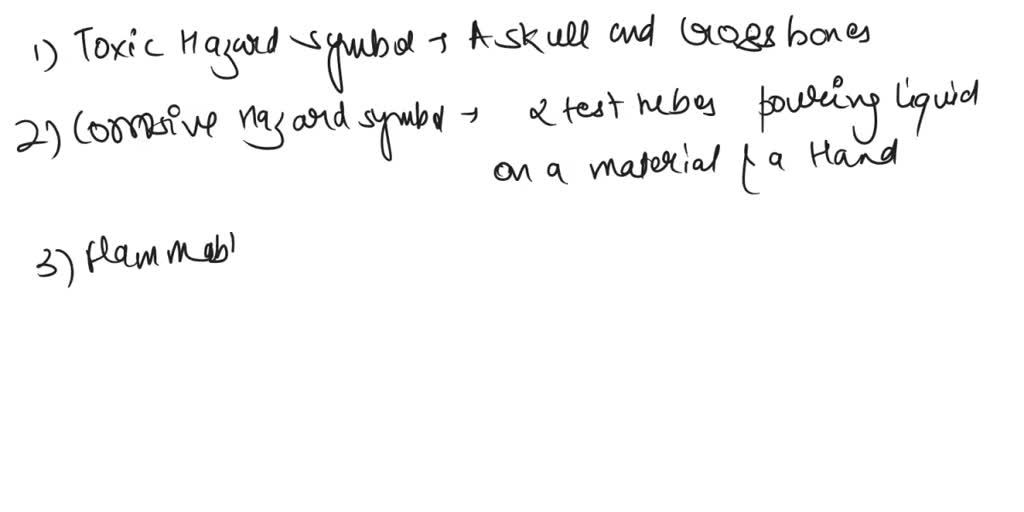 1) Toxic Hazard symbol → A skull and Cross bones
2) Corrosive Hazard symbol → 2 test tubes pouring liquid
on a material & a Hand
3) Flammabl